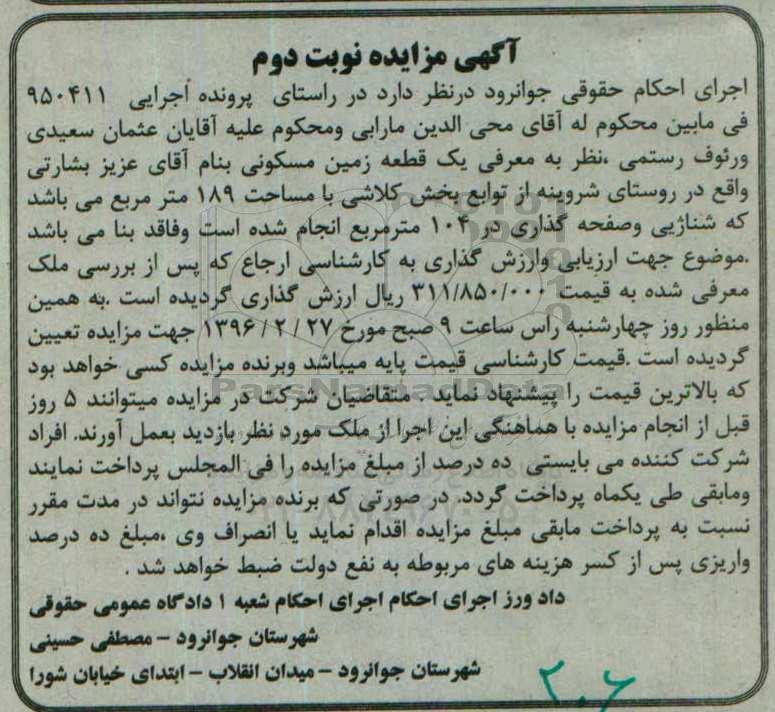 آگهی مزایده نوبت دوم
اجرای احکام حقوقی جوانرود درنظر دارد در راستای پرونده اجرایی ۹۵۰۴۱۱
فی مابین محکوم له آقای محی الدین مارابی ومحکوم علیه آقایان عثمان سعیدی
ورئوف رستمی ،نظر به معرفی یک قطعه زمین مسکونی بنام آقای عزیز بشارتی
واقع در روستای شروینه از توابع بخش کلاشی با مساحت ۱۸۹ متر مربع می باشد
که شناژیی وصفحه گذاری در ۱۰۴ مترمربع انجام شده است وفاقد بنا می باشد
.موضوع جهت ارزیابی وارزش گذاری به کارشناسی ارجاع که پس از بررسی ملک
معرفی شده به قیمت ۳۱۱/۸۵۰/۰۰۰ ریال ارزش گذاری گردیده است .به همین
منظور روز چهارشنبه راس ساعت ۹ صبح مورخ ۱۳۹۶/۲/۲۷ جهت مزایده تعیین
گردیده است .قیمت کارشناسی قیمت پایه میباشد وبرنده مزایده کسی خواهد بود
که بالاترین قیمت را پیشنهاد نماید . متقاضیان شرکت در مزایده میتوانند ۵ روز
قبل از انجام مزایده با هماهنگی این اجرا از ملک مورد نظر بازدید بعمل آورند. افراد
شرکت کننده می بایستی ده درصد از مبلغ مزایده را فی المجلس پرداخت نمایند
ومابقی طی یکماه پرداخت گردد. در صورتی که برنده مزایده نتواند در مدت مقرر
نسبت به پرداخت مابقی مبلغ مزایده اقدام نماید یا انصراف وی ،مبلغ ده درصد
واریزی پس از کسر هزینه های مربوطه به نفع دولت ضبط خواهد شد .
داد ورز اجرای احکام اجرای احکام شعبه ۱ دادگاه عمومی حقوقی
شهرستان جوانرود – مصطفی حسینی
شهرستان جوانرود – میدان انقلاب – ابتدای خیابان شورا
۲۰۶
ParsNamadData